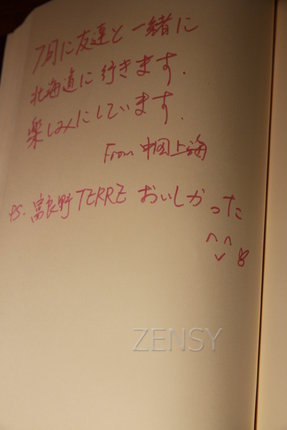 7月に友達と一緒に
北海道に行きます.
楽しみにしています.
From 中国上海
PS. 富良野 TERRE おいしかった
^^
ZENSY